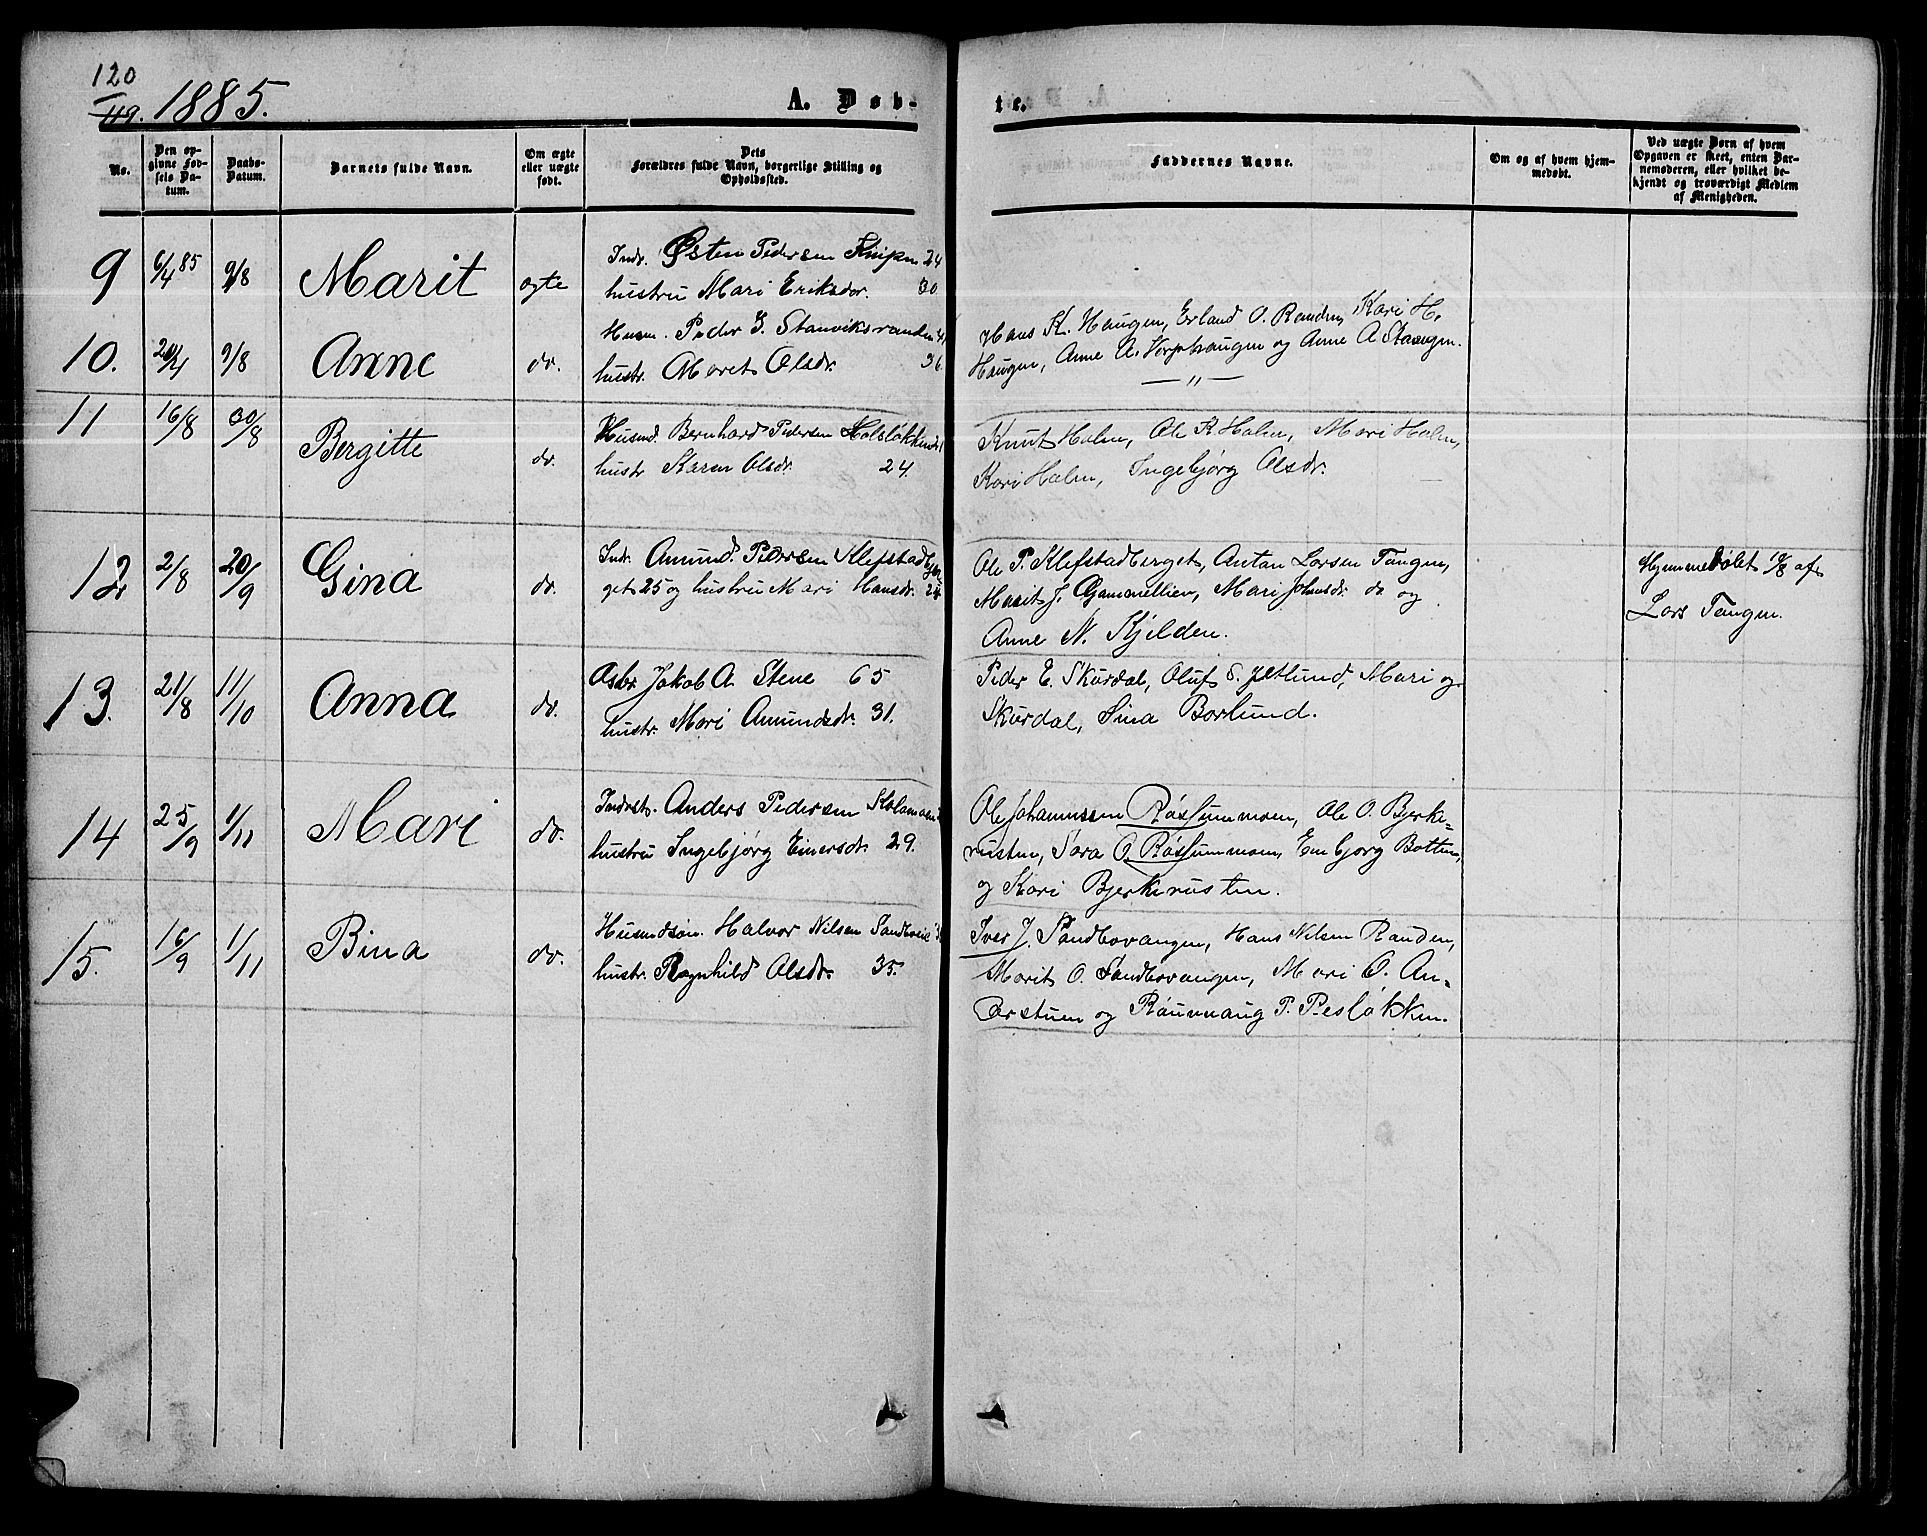 120
119. 1885.
A. Døb-
te.
No.
Den op-
givne Fød-
sels Da-
tum.
Daabs-
Datum.
Barnets fulde Navn.
Om ægte
eller uægte
født.
Dets
Forældres fulde Navn, borgerlige Stilling og
Opholdssted.
Faddernes Navne.
Om og af hvem hjem-
medøbt.
Ved uægte Børn af hvem
Opgaven er skeet, enten Bar-
nemoderen, eller hvilket be-
kjendt og troværdigt Medlem
af Menigheden.
9 6/4 85 9/8 Marit ægte
Indr. Østen Pedersen 24
hustru Mari Eriksdr. 30
10. 9/8 Anne do.
Husm. Peder Stamviksranden
hustr. Maret Olsdr. 36.
Hans K. Haugen, Erland O. Randen, Kari H.
Haugen, Anne A. Vorphaugen og Anne A. Staugen.
— " —
11 16/8 30/8 Bergitte do.
Husmd. Bernhard Pedersen Holsløkken
hustr Karen Olsdr. 24.
Knut Holm, Ole K Holm, Mari Holm,
Kari Holm, Ingebjørg Olsdr.
12 2/8 20/9 Gina do.
Indr. Amund Pedersen Klefstadber-
get 25 og hustru Mari Hansdr. 24
Ole P. Klefstadberget, Anton Larsen Tangen,
Marit J. Gammellien, Mari Johnsdr. do og
Anne N. Kjelden.
Hjemmedøbt af
Lars Tangen.
13. 21/8 11/10 Anna do.
Jakob A. Stene 65
hustr. Mari Amundsdr. 31.
Peder E. Skurdal, Oluf S. Jetlund, Mari og
Skurdal, Sina Borlund.
14 25/9 1/11 Mari do.
Inderst. Anders Pedersen Kolomoen
hustru Ingebjørg Einersdr. 29.
Ole Johannssen Røssummoen, Ole O. Bjerke-
rusten, Sara O. Røssummoen, Botten,
og Kari Bjerkerusten.
15. 16/9 1/11 Bina do.
Husmdsøn. Halvor Nilsen
hustr. Ragnhild Olsdr. 35.
Iver J. Sandbovangen, Hans Nilsen Randen,
Marit O. Sandbovangen, Mari O. An-
derstuen og Rønnaug P. Pesløkken.